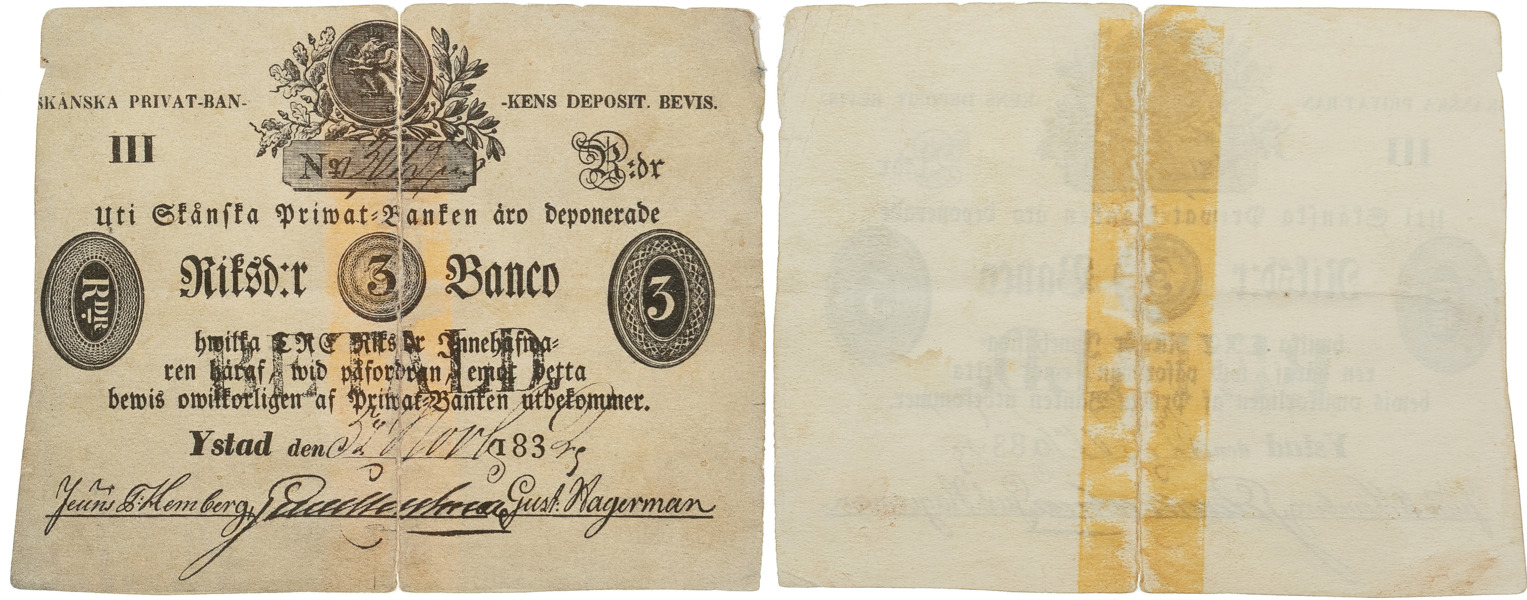 SKÅNSKA PRIVAT-BAN- -KENS DEPOSIT. BEVIS.
III R:dr
No
Uti Skånska Priwat-Banken äro deponerade
RDR Riksd:r 3 Banco 3
hwilka TRE Riksd:r Innehafwa-
ren häraf, wid påfordran, emot detta
bewis owilkorligen af Priwat-Banken utbekommer.
BETALD.
Ystad den 183
Gust. Hagerman